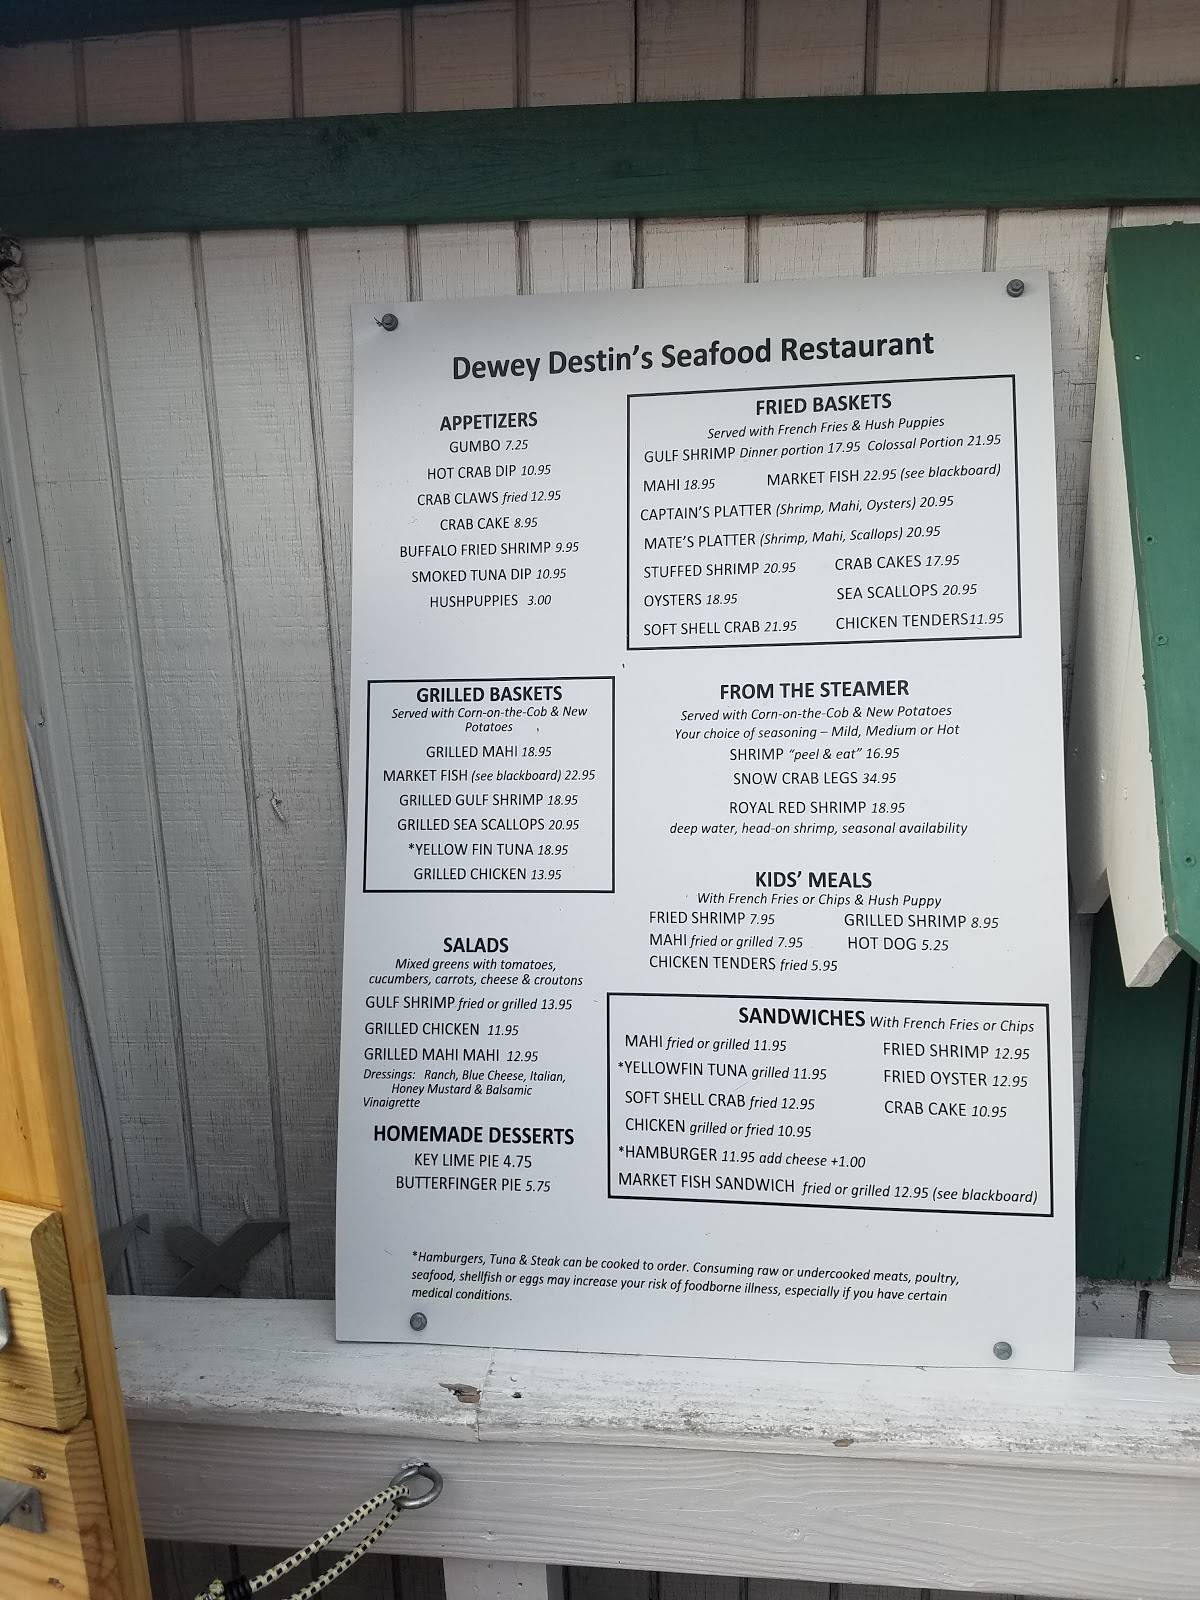 Dewey Destin's Seafood Restaurant
APPETIZERS
GUMBO 7.25
HOT CRAB DIP 10.95
CRAB CLAWS fried 12.95
CRAB CAKE 8.95
BUFFALO FRIED SHRIMP 9.95
SMOKED TUNA DIP 10.95
HUSHPUPPIES 3.00
FRIED BASKETS
Served with French Fries & Hush Puppies
GULF SHRIMP Dinner portion 17.95 Colossal Portion 21.95
MAHI 18.95 MARKET FISH 22.95 (see blackboard)
CAPTAIN'S PLATTER (Shrimp, Mahi, Oysters) 20.95
MATE'S PLATTER (Shrimp, Mahi, Scallops) 20.95
STUFFED SHRIMP 20.95 CRAB CAKES 17.95
OYSTERS 18.95 SEA SCALLOPS 20.95
SOFT SHELL CRAB 21.95 CHICKEN TENDERS11.95
GRILLED BASKETS
Served with Corn-on-the-Cob & New
Potatoes
GRILLED MAHI 18.95
MARKET FISH (see blackboard) 22.95
GRILLED GULF SHRIMP 18.95
GRILLED SEA SCALLOPS 20.95
*YELLOW FIN TUNA 18.95
GRILLED CHICKEN 13.95
FROM THE STEAMER
Served with Corn-on-the-Cob & New Potatoes
Your choice of seasoning – Mild, Medium or Hot
SHRIMP "peel & eat" 16.95
SNOW CRAB LEGS 34.95
ROYAL RED SHRIMP 18.95
deep water, head-on shrimp, seasonal availability
KIDS' MEALS
With French Fries or Chips & Hush Puppy
FRIED SHRIMP 7.95 GRILLED SHRIMP 8.95
MAHI fried or grilled 7.95 HOT DOG 5.25
CHICKEN TENDERS fried 5.95
SALADS
Mixed greens with tomatoes,
cucumbers, carrots, cheese & croutons
GULF SHRIMP fried or grilled 13.95
GRILLED CHICKEN 11.95
GRILLED MAHI MAHI 12.95
Dressings: Ranch, Blue Cheese, Italian,
Honey Mustard & Balsamic
Vinaigrette
HOMEMADE DESSERTS
KEY LIME PIE 4.75
BUTTERFINGER PIE 5.75
SANDWICHES With French Fries or Chips
MAHI fried or grilled 11.95 FRIED SHRIMP 12.95
*YELLOWFIN TUNA grilled 11.95 FRIED OYSTER 12.95
SOFT SHELL CRAB fried 12.95 CRAB CAKE 10.95
CHICKEN grilled or fried 10.95
*HAMBURGER 11.95 add cheese +1.00
MARKET FISH SANDWICH fried or grilled 12.95 (see blackboard)
*Hamburgers, Tuna & Steak can be cooked to order. Consuming raw or undercooked meats, poultry,
seafood, shellfish or eggs may increase your risk of foodborne illness, especially if you have certain
medical conditions.